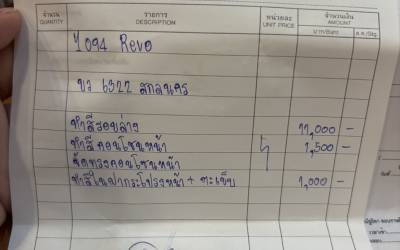 จำนวน QUANTITY รายการ DESCRIPTION หน่วยละ UNIT PRICE จำนวนเงิน AMOUNT
บาท/Baht ส.ต./Stg.
1094 Revo
บว 6322 สกลนคร
ทำสีรอบล่าง 11,000 -
ทำสีคอนโซนหน้า 1,500 -
จัดทรงคอนโซนหน้า
ทำสีในฝากระโปรงหน้า + ตะเข็บ 1,000 -